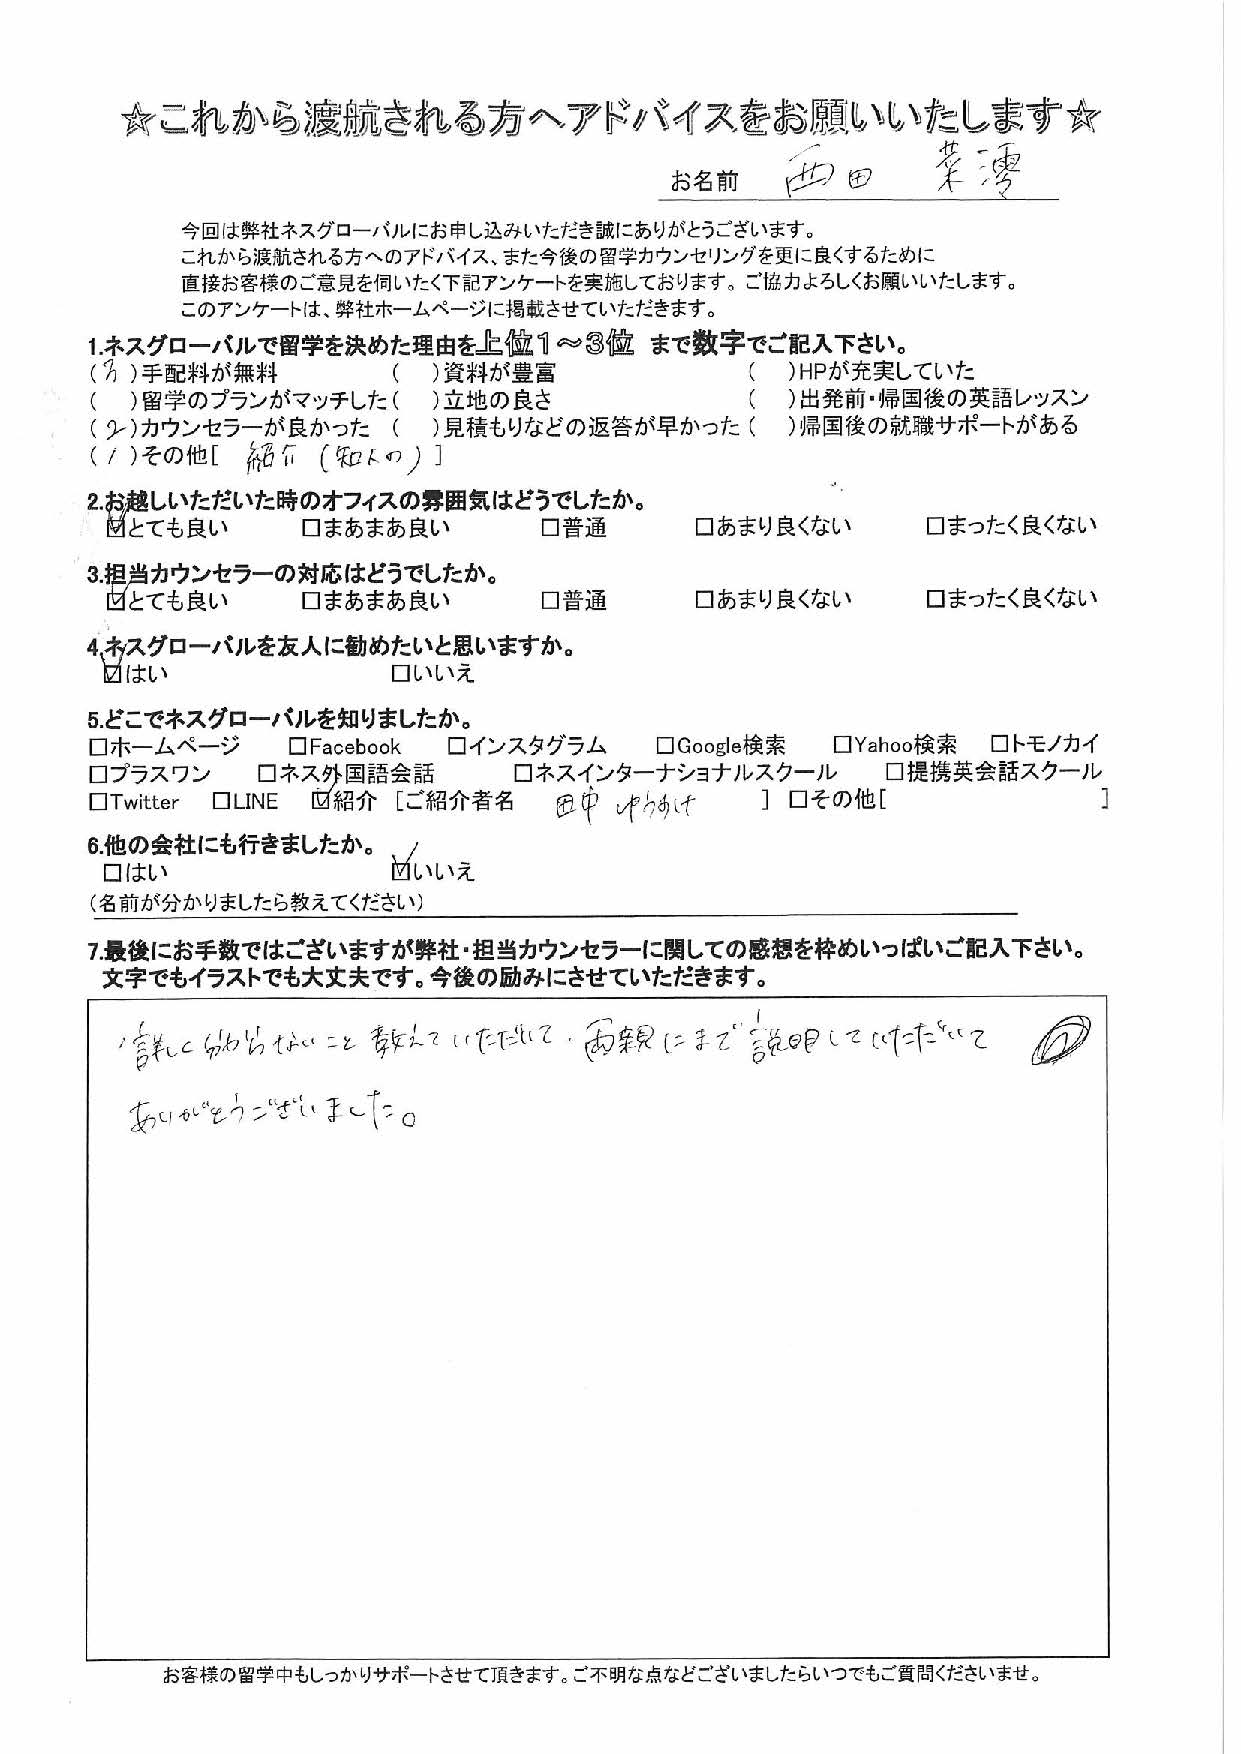 ☆これから渡航される方へアドバイスをお願いいたします☆
お名前 西田 菜澪
今回は弊社ネスグローバルにお申し込みいただき誠にありがとうございます。
これから渡航される方へのアドバイス、また今後の留学カウンセリングを更に良くするために
直接お客様のご意見を伺いたく下記アンケートを実施しております。ご協力よろしくお願いいたします。
このアンケートは、弊社ホームページに掲載させていただきます。
1.ネスグローバルで留学を決めた理由を上位1～3位 まで数字でご記入下さい。
(3)手配料が無料 ( )資料が豊富 ( )HPが充実していた
( )留学のプランがマッチした ( )立地の良さ ( )出発前・帰国後の英語レッスン
(2)カウンセラーが良かった ( )見積もりなどの返答が早かった ( )帰国後の就職サポートがある
(1)その他[ 紹介 (知人の) ]
2.お越しいただいた時のオフィスの雰囲気はどうでしたか。
☑とても良い □まあまあ良い □普通 □あまり良くない □まったく良くない
3.担当カウンセラーの対応はどうでしたか。
☑とても良い □まあまあ良い □普通 □あまり良くない □まったく良くない
4.ネスグローバルを友人に勧めたいと思いますか。
☑はい □いいえ
5.どこでネスグローバルを知りましたか。
□ホームページ □Facebook □インスタグラム □Google検索 □Yahoo検索 □トモノカイ
□プラスワン □ネス外国語会話 □ネスインターナショナルスクール □提携英会話スクール
□Twitter □LINE ☑紹介 [ご紹介者名 田中 ] □その他[ ]
6.他の会社にも行きましたか。
□はい ☑いいえ
(名前が分かりましたら教えてください)
7.最後にお手数ではございますが弊社・担当カウンセラーに関しての感想を枠めいっぱいご記入下さい。
文字でもイラストでも大丈夫です。今後の励みにさせていただきます。
・詳しく分からないこと教えていただいて、両親にまで説明していただいて
ありがとうございました。
お客様の留学中もしっかりサポートさせて頂きます。ご不明な点などございましたらいつでもご質問くださいませ。